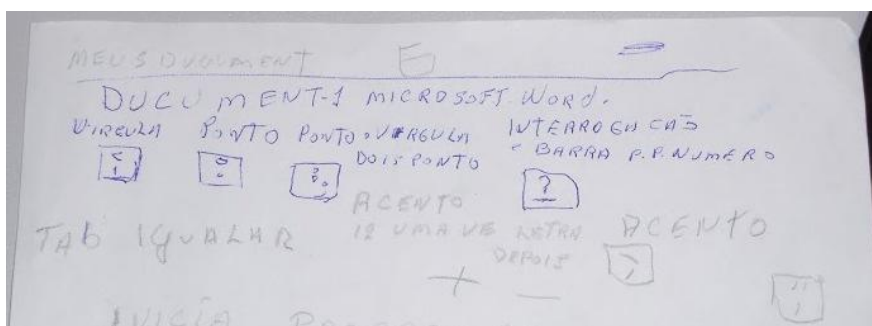 MEUS DUCUMENT
DUCUMENT-1 MICROSOFT WORD.
VIRGULA PONTO PONTO VIRGULA INTERROGACAÕ
DOIS PONTO BARRA P.P. NUMERO
?
ACENTO
TAB IGUALAR 12 UMA VE LETRA ACENTO
DEPOIS
+ —
INICIA